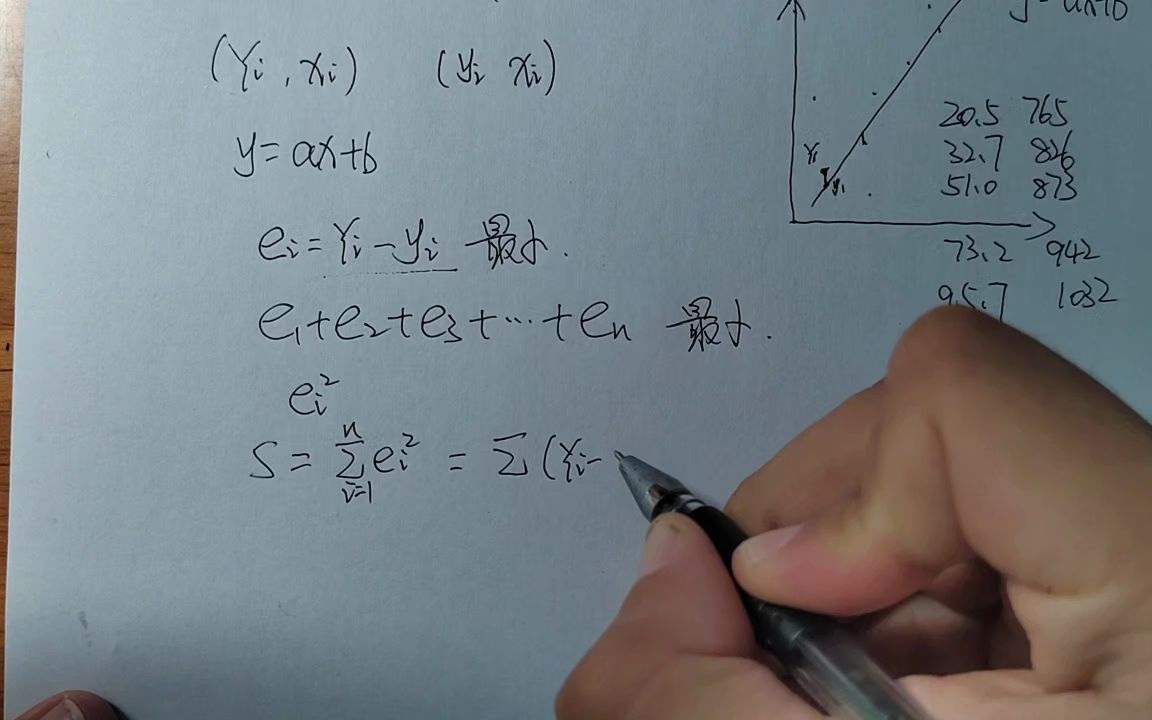 (Yi , xi) (yi xi)
y = ax+b
ei = Yi - yi 最小.
e1+e2+e3+…+en 最小.
ei²
S = Σ(i=1, n) ei² = Σ (Yi-
y=ax+b
Yi
yi
20.5 765
32.7 826
51.0 873
73.2 942
95.7 1032